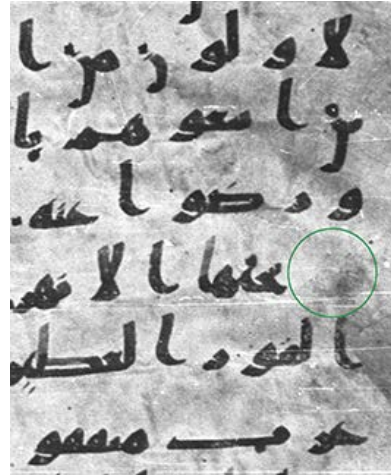 لا ولون من ا
ين ا تبعو هم با
و ر ضو ا عنه
تحتها ا لا نهر
ا لفو ز ا لعظيم
عر ب منفقو